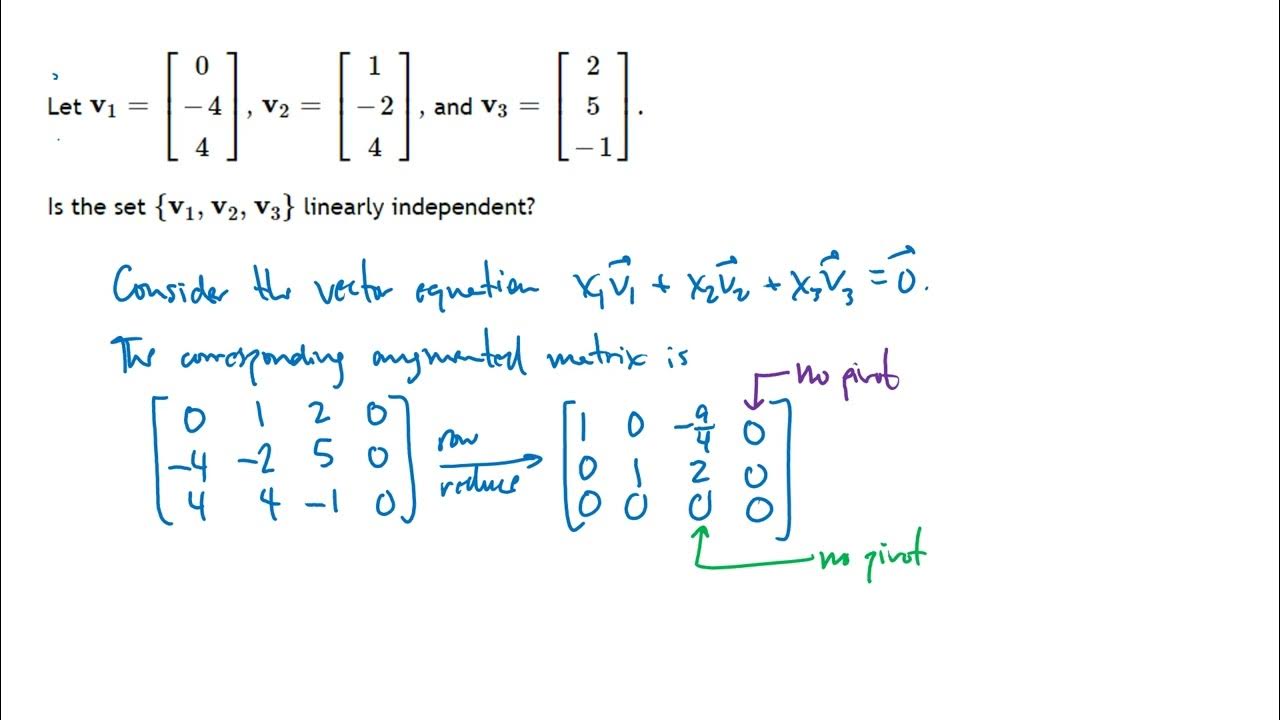 Let v₁ = [ 0 −4 4 ], v₂ = [ 1 −2 4 ], and v₃ = [ 2 5 −1 ].
Is the set {v₁, v₂, v₃} linearly independent?
Consider the vector equation x₁v⃗₁ + x₂v⃗₂ + x₃v⃗₃ = 0⃗.
The corresponding augmented matrix is
no pivot
0 1 2 0 row 1 0 −9/4 0
−4 −2 5 0 reduce 0 1 2 0
4 4 −1 0 0 0 0 0
no pivot